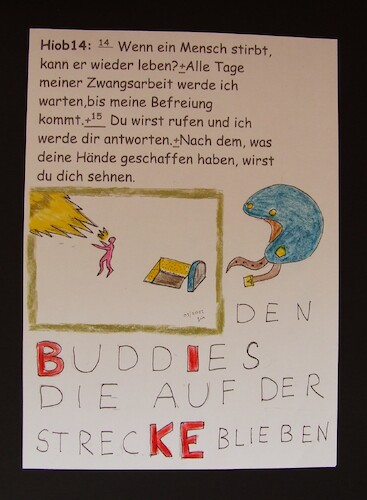 Hiob14: 14 Wenn ein Mensch stirbt,
kann er wieder leben?+Alle Tage
meiner Zwangsarbeit werde ich
warten,bis meine Befreiung
kommt.+15 Du wirst rufen und ich
werde dir antworten.+Nach dem, was
deine Hände geschaffen haben, wirst
du dich sehnen.
DEN
BUDDIES
DIE AUF DER
STRECKE BLIEBEN